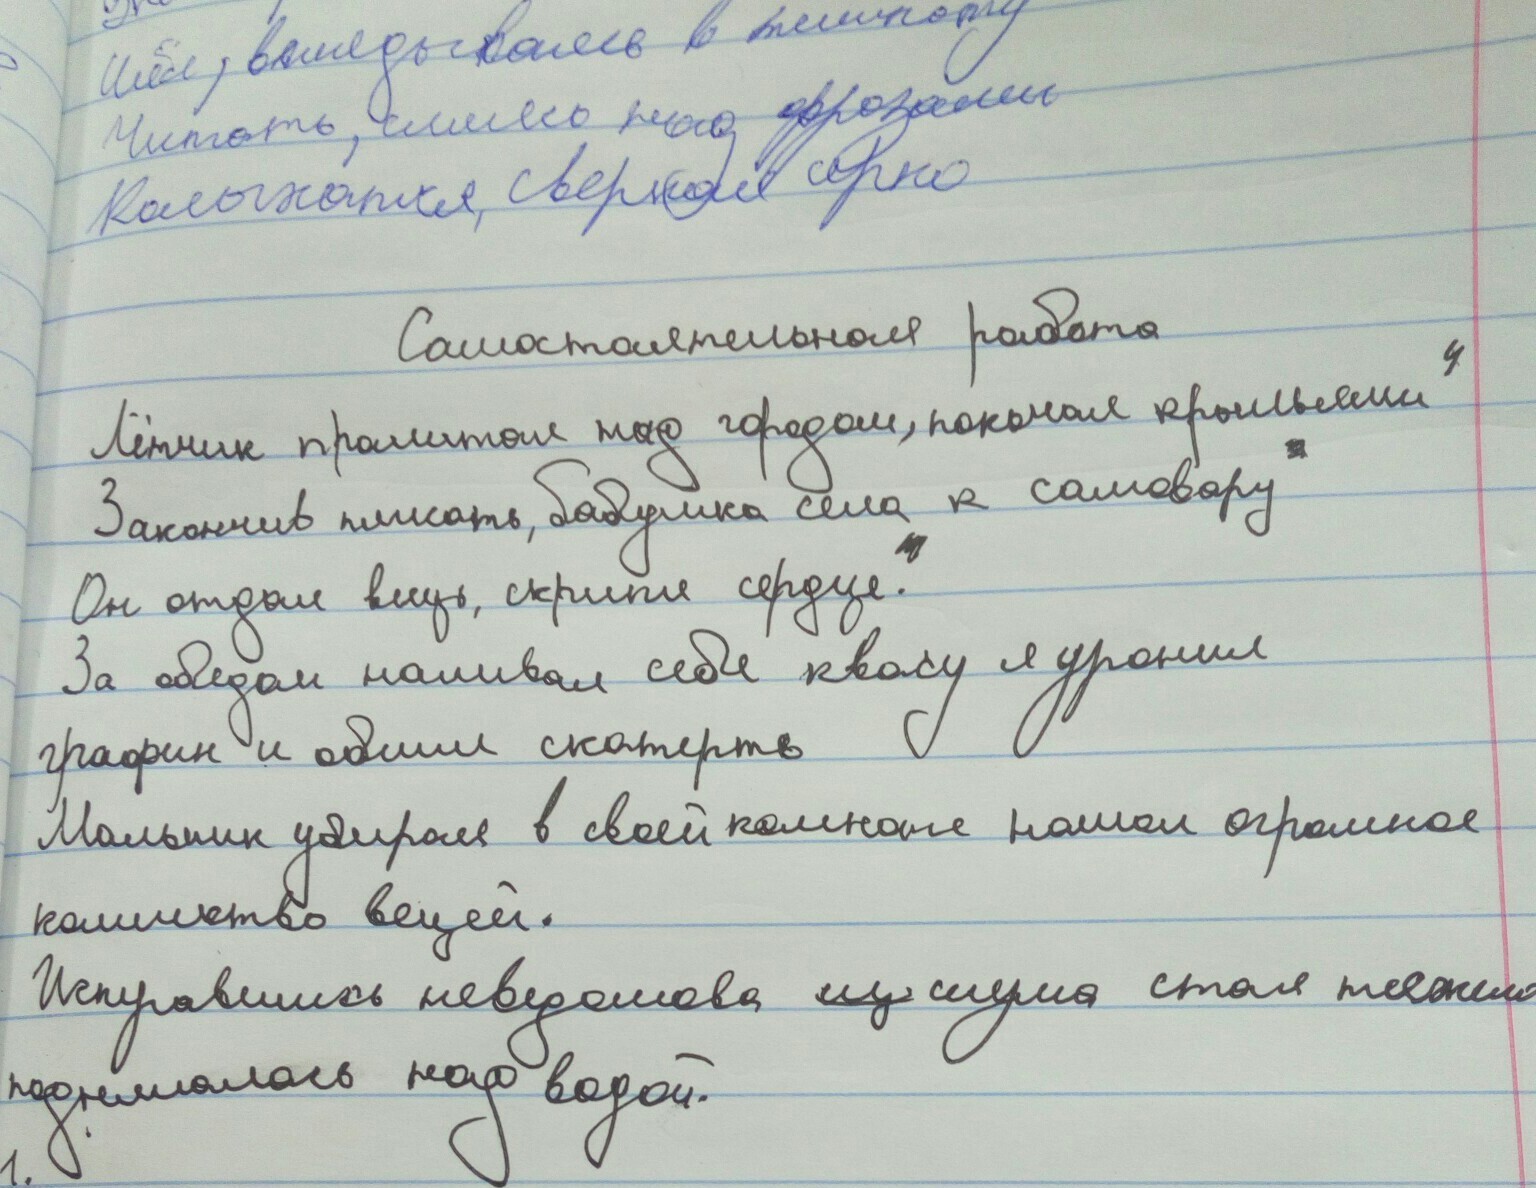 Шёл, вглядываясь в темноту
Читать, сидя над фразами
Колыхатся, сверкая ярко
Самостоятельная работа
Лётчик пролитая над городом, покачал крыльями"
Закончив писать, бабушка села к самовару"
Он отдал вещь, скрипя сердце."
За обедом наливая себе квасу я уронил
графин и облил скатерть
Мальчик убирая в своей комнате нашол огромное
количество вещей.
Испугавшись неведомова шума стая тяжело
поднималась над водой.
1.